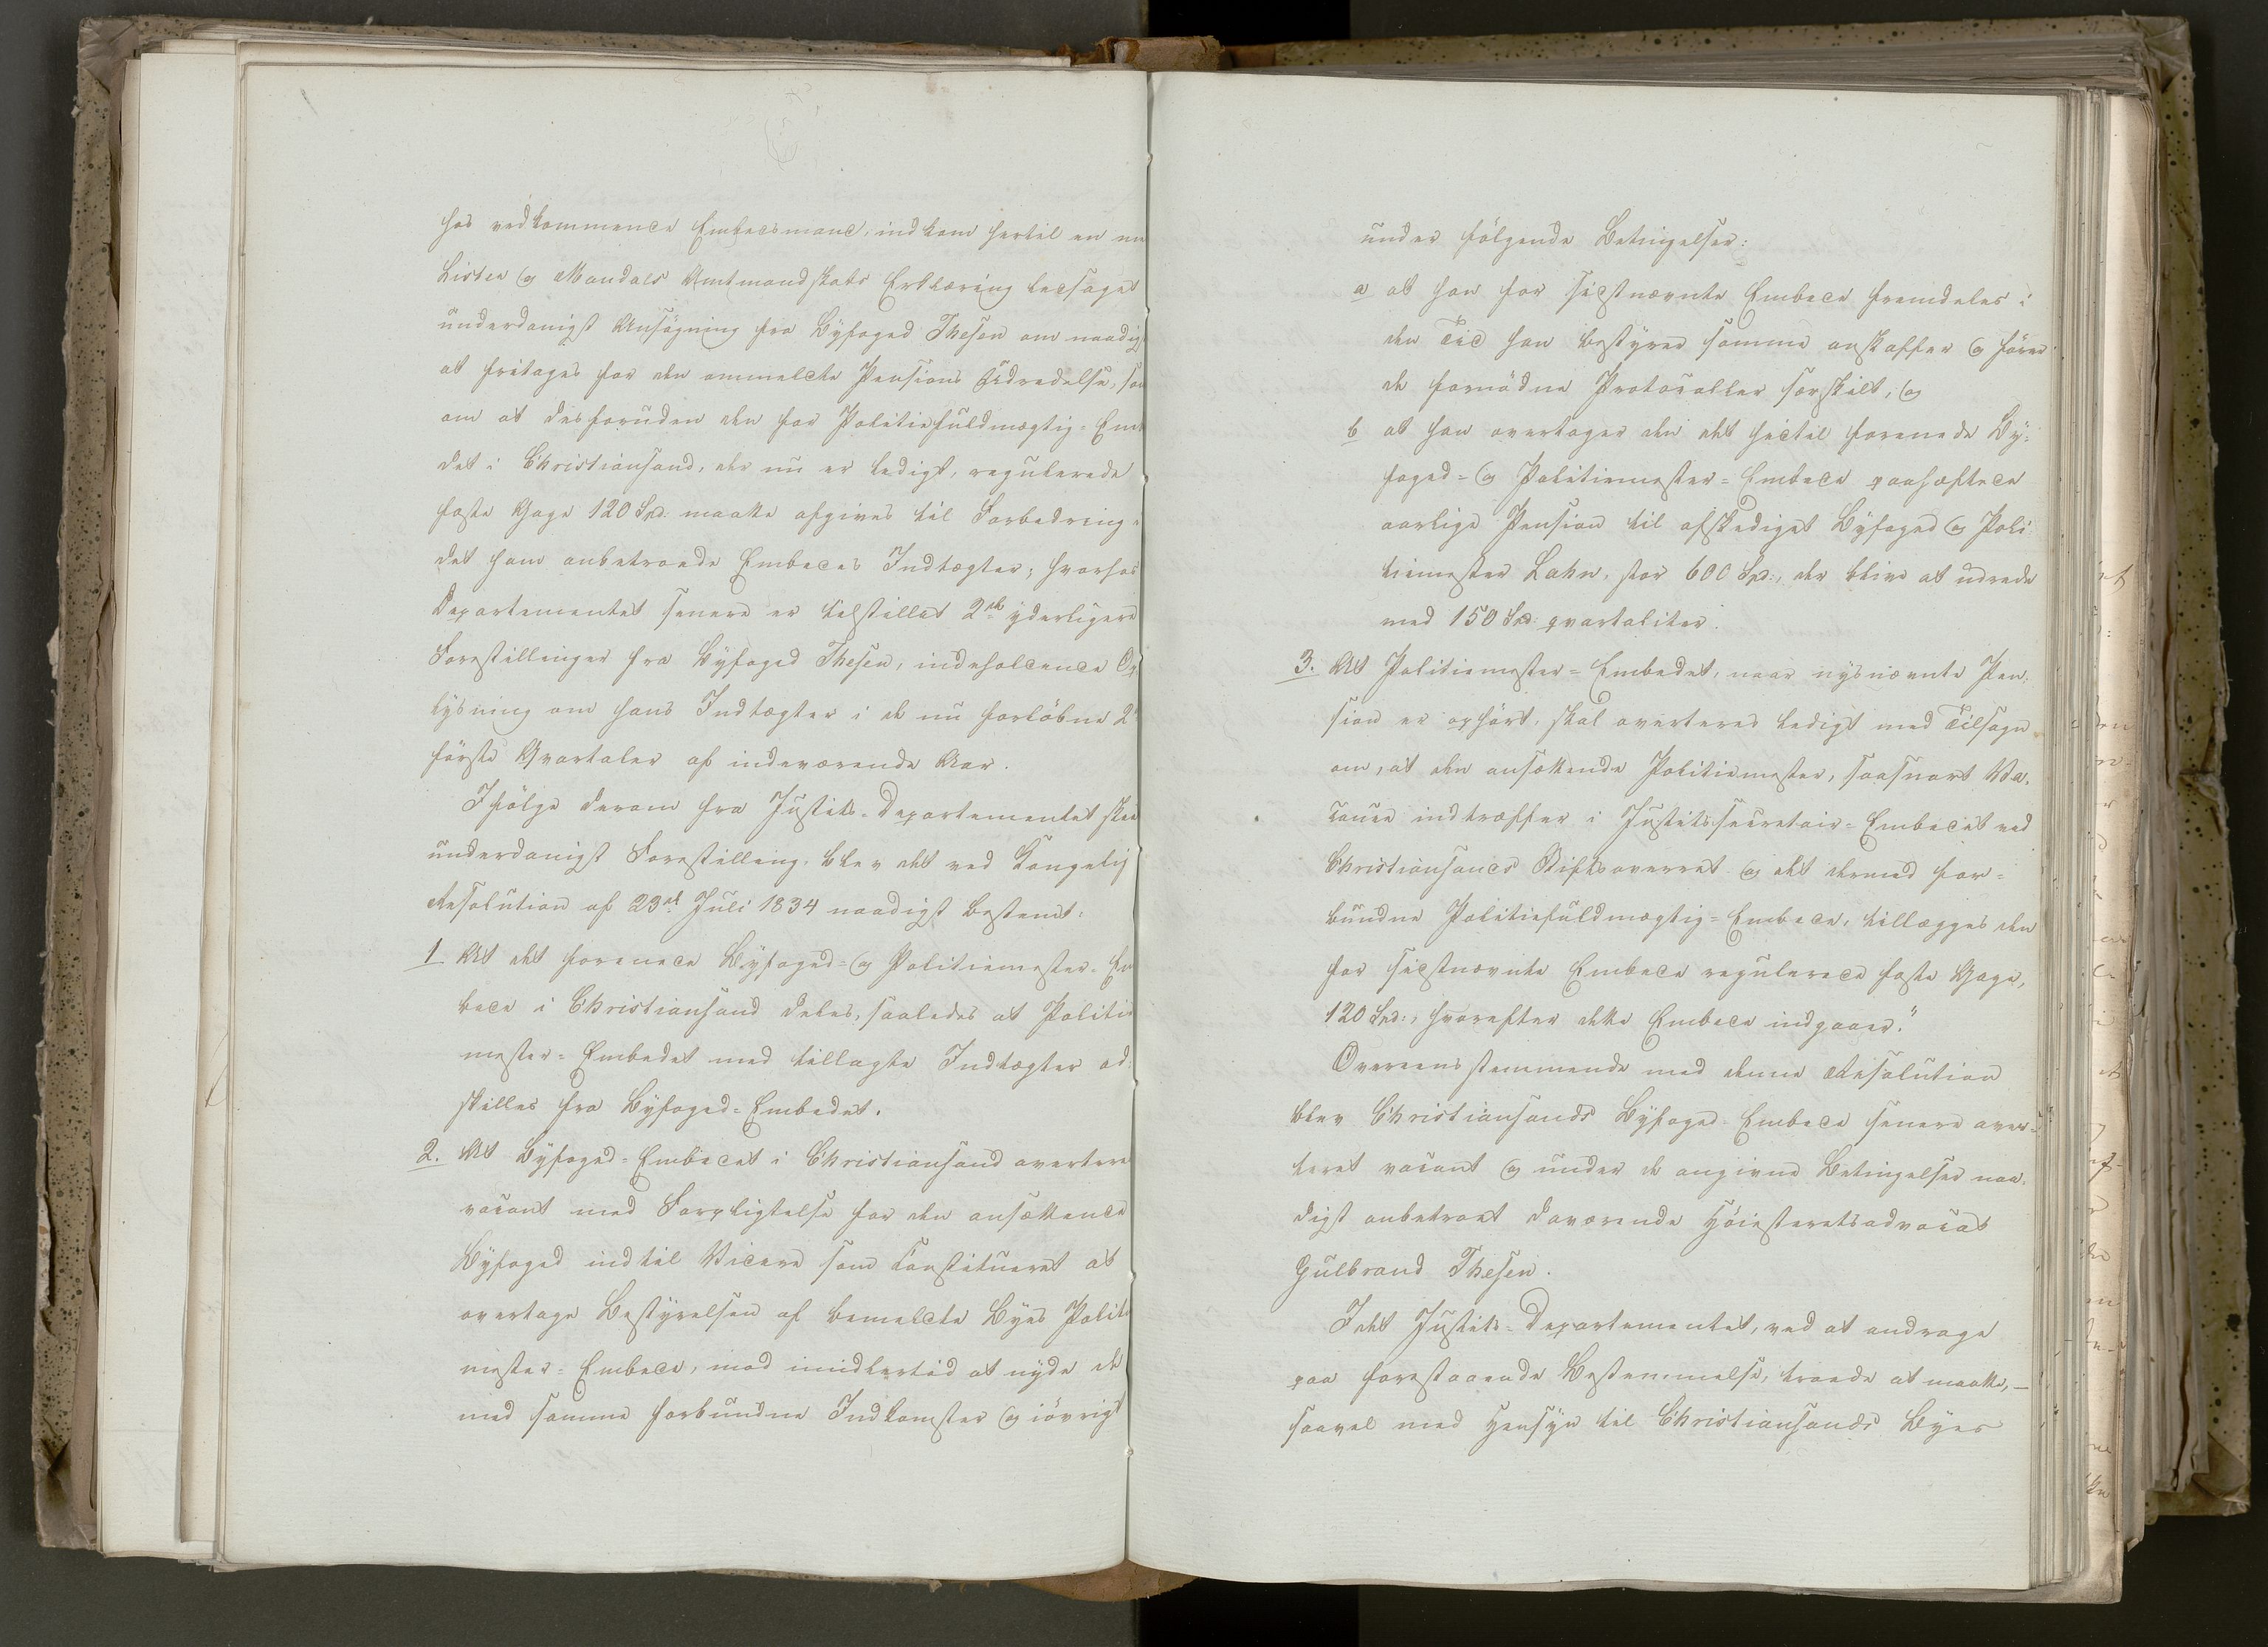 hos vedkommende Embedsmand, indkom hertil en med
Lister og Mandals Amtmandskabs Erklæring ledsaget
underdanigst Ansøgning fra Byfoged Thesen om naadigst
at fritages for den ommeldte Pensions Udredelse, samt
om at desforuden den for Politiefuldmægtig-Embe
det i Christiansand, der nu er ledigt, regulerede
faste Gage 120 Spd. maatte afgives til Forbedring af
det ham anbetroede Embedes Indtægter; hvorhos
Departementet senere er tilstillet 2de yderligere
Forestillinger fra Byfoged Thesen, indeholdende Op
lysning om hans Indtægter i de nu forløbne 2
første Qvartaler af indeværende Aar.
Ifølge derom fra Justits-Departementet skeet
underdanigst Forestilling, blev det ved Kongelig
Resolution af 23de Juli 1834 naadigst bestemt:
1 At det forenede Byfoged- og Politiemester-Em
bede i Christiansand deles, saaledes at Politie
mester-Embedet med tillagte Indtægter ad-
skilles fra Byfoged-Embedet.
2. At Byfoged-Embedet i Christiansand averteres
vacant med Forpligtelse for den ansættende
Byfoged indtil Videre som Constitueret at
overtage Bestyrelsen af bemeldte Byes Politie
mester-Embede, mod imidlertid at nyde de
med samme forbundne Indkomster og iøvrigt
under følgende Betingelser:
a at han for sidstnævnte Embede fremdeles i
den Tid han bestyrer samme anskaffer og fører
de fornødne Protocoller særskilt, og
b at han overtager den det hidtil forenede By-
foged- og Politiemester-Embede paaheftede
aarlige Pension til afskediget Byfoged og Poli-
tiemester Lahn, stor 600 Spd., der blive at udrede
med 150 Spd. qvartaliter.
3. At Politiemester-Embedet, naar nysnævnte Pen-
sion er ophørt, skal averteres ledigt med Tilsagn
om, at den ansættende Politiemester, saasnart Va-
cance indtræffer i Justitssecretair-Embedet ved
Christiansands Stiftsoverret og det dermed for-
bundne Politiefuldmægtig-Embede, tillægges den
for sidstnævnte Embede regulerede faste Gage,
120 Spd:, hvorefter dette Embede indgaaer."
Overeensstemmende med denne Resolution
blev Christiansands Byfoged-Embede senere aver-
teret vacant og under de angivne Betingelser naa-
digst anbetroet daværende Høiesteretsadvocat
Gulbrand Thesen.
Idet Justits-Departementet, ved at andrage
paa forestaaende Bestemmelse, troede at maatte, –
saavel med Hensyn til Christiansands Byes